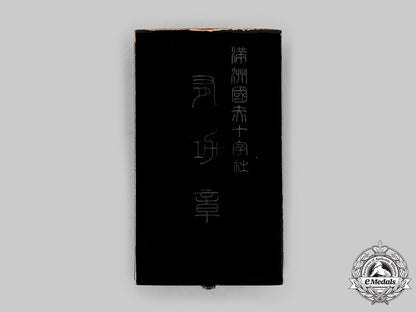 滿洲國赤十字社
有功章
eMedals